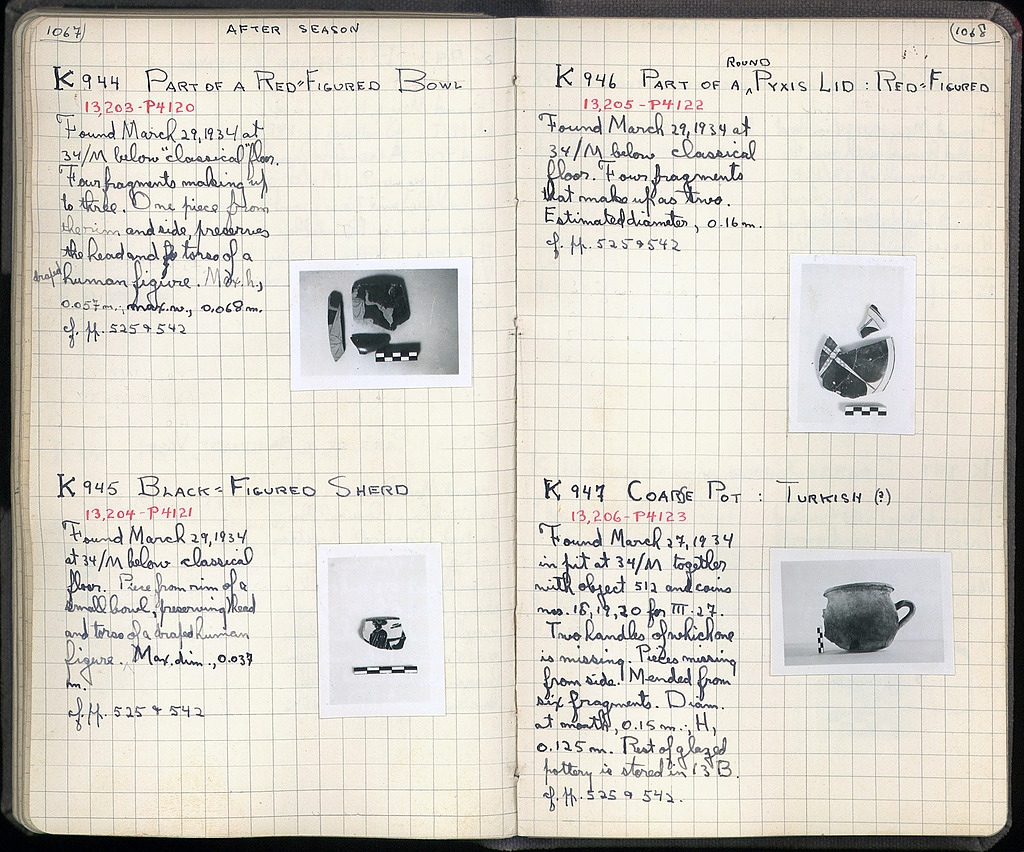 1067
AFTER SEASON
K 944 PART OF A RED-FIGURED BOWL
13,203-P4120
Found March 29, 1934 at
34/M below "classical" floor.
Four fragments making up
to three. One piece from
the rim and side, preserves
the head and torso of a
draped human figure. Max. h.,
0.057 m., max. w., 0.068 m.
cf. pp. 525 & 542
K 945 BLACK-FIGURED SHERD
13,204-P4121
Found March 29, 1934
at 34/M below classical
floor. Piece from rim of a
small bowl, preserving head
and torso of a draped human
figure. Max. dim., 0.037
m.
cf. pp. 525 & 542
1068
K 946 PART OF A ROUND PYXIS LID : RED-FIGURED
13,205-P4122
Found March 29, 1934 at
34/M below classical
floor. Four fragments
that make up as two.
Estimated diameter, 0.16 m.
cf. pp. 525 & 542
K 947 COARSE POT : TURKISH (?)
13,206-P4123
Found March 27, 1934
in pit at 34/M together
with object 512 and coins
nos. 18, 19, 20 for III-27.
Two handles of which one
is missing. Pieces missing
from side. Mended from
six fragments. Diam.
at mouth, 0.15 m.; H,
0.125 m. Rest of glazed
pottery is stored in 13 B.
cf. pp. 525 & 542.